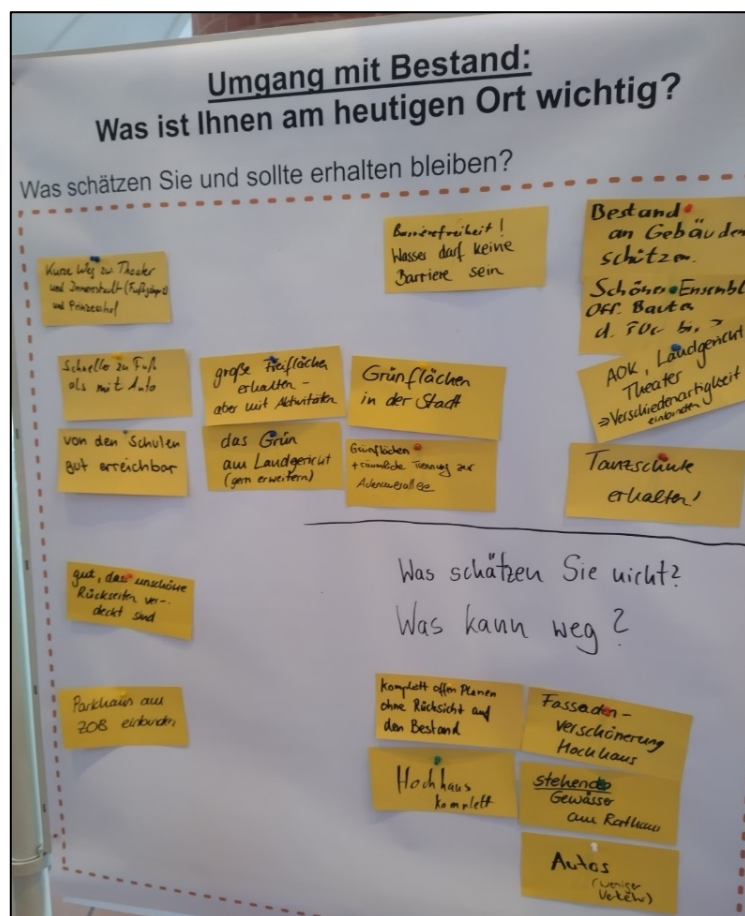 Umgang mit Bestand:
Was ist Ihnen am heutigen Ort wichtig?
Was schätzen Sie und sollte erhalten bleiben?
Kurze Weg zu Theater
und Innenstadt (Fußgänger)
und Prinzenhof
Schneller zu Fuß
als mit Auto
von den Schulen
gut erreichbar
gut, dass unschöne
Rückseiten ver-
deckt sind
Parkhaus am
ZOB einbinden
große Freiflächen
erhalten -
aber mit Aktivitäten
das Grün
am Landgericht
(gern erweitern)
Barrierefreiheit!
Wasser darf keine
Barriere sein
Grünflächen
in der Stadt
Grünflächen
+ räumliche Trennung zur
Adenauerallee
Bestand
an Gebäuden
schützen.
Schönes Ensembl
Öff. Bauten
d.
AOK, Landgericht
Theater
⇒ Verschiedenartigkeit
einbinden
Tanzschule
erhalten!
Was schätzen Sie nicht?
Was kann weg?
komplett offen Planen
ohne Rücksicht auf
den Bestand
Hochhaus
komplett
Fassaden-
verschönerung
Hochhaus
stehende
Gewässer
am Rathaus
Autos
(weniger
Verkehr)